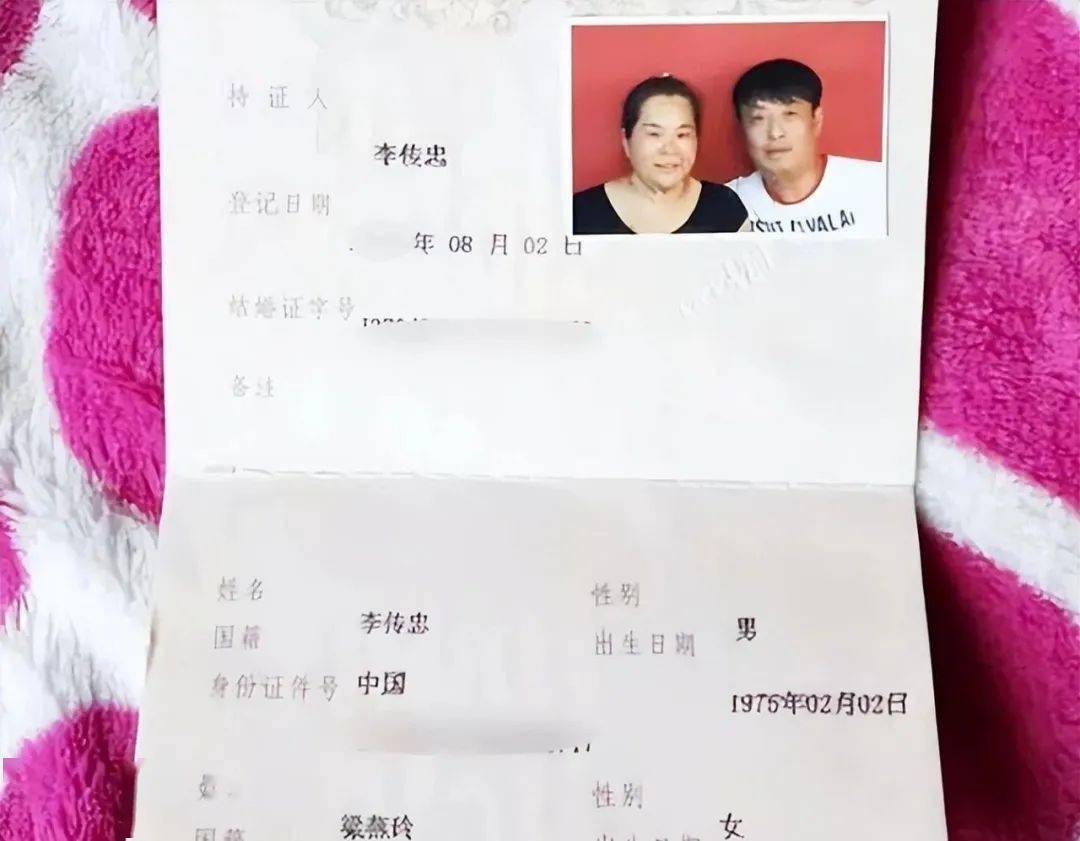 持证人
李传忠
登记日期
年 08 月 02 日
结婚证字号
备注
姓名
李传忠
性别
男
国籍
中国
出生日期
1975年02月02日
身份证件号
梁燕玲
性别
女
国籍
出生日期